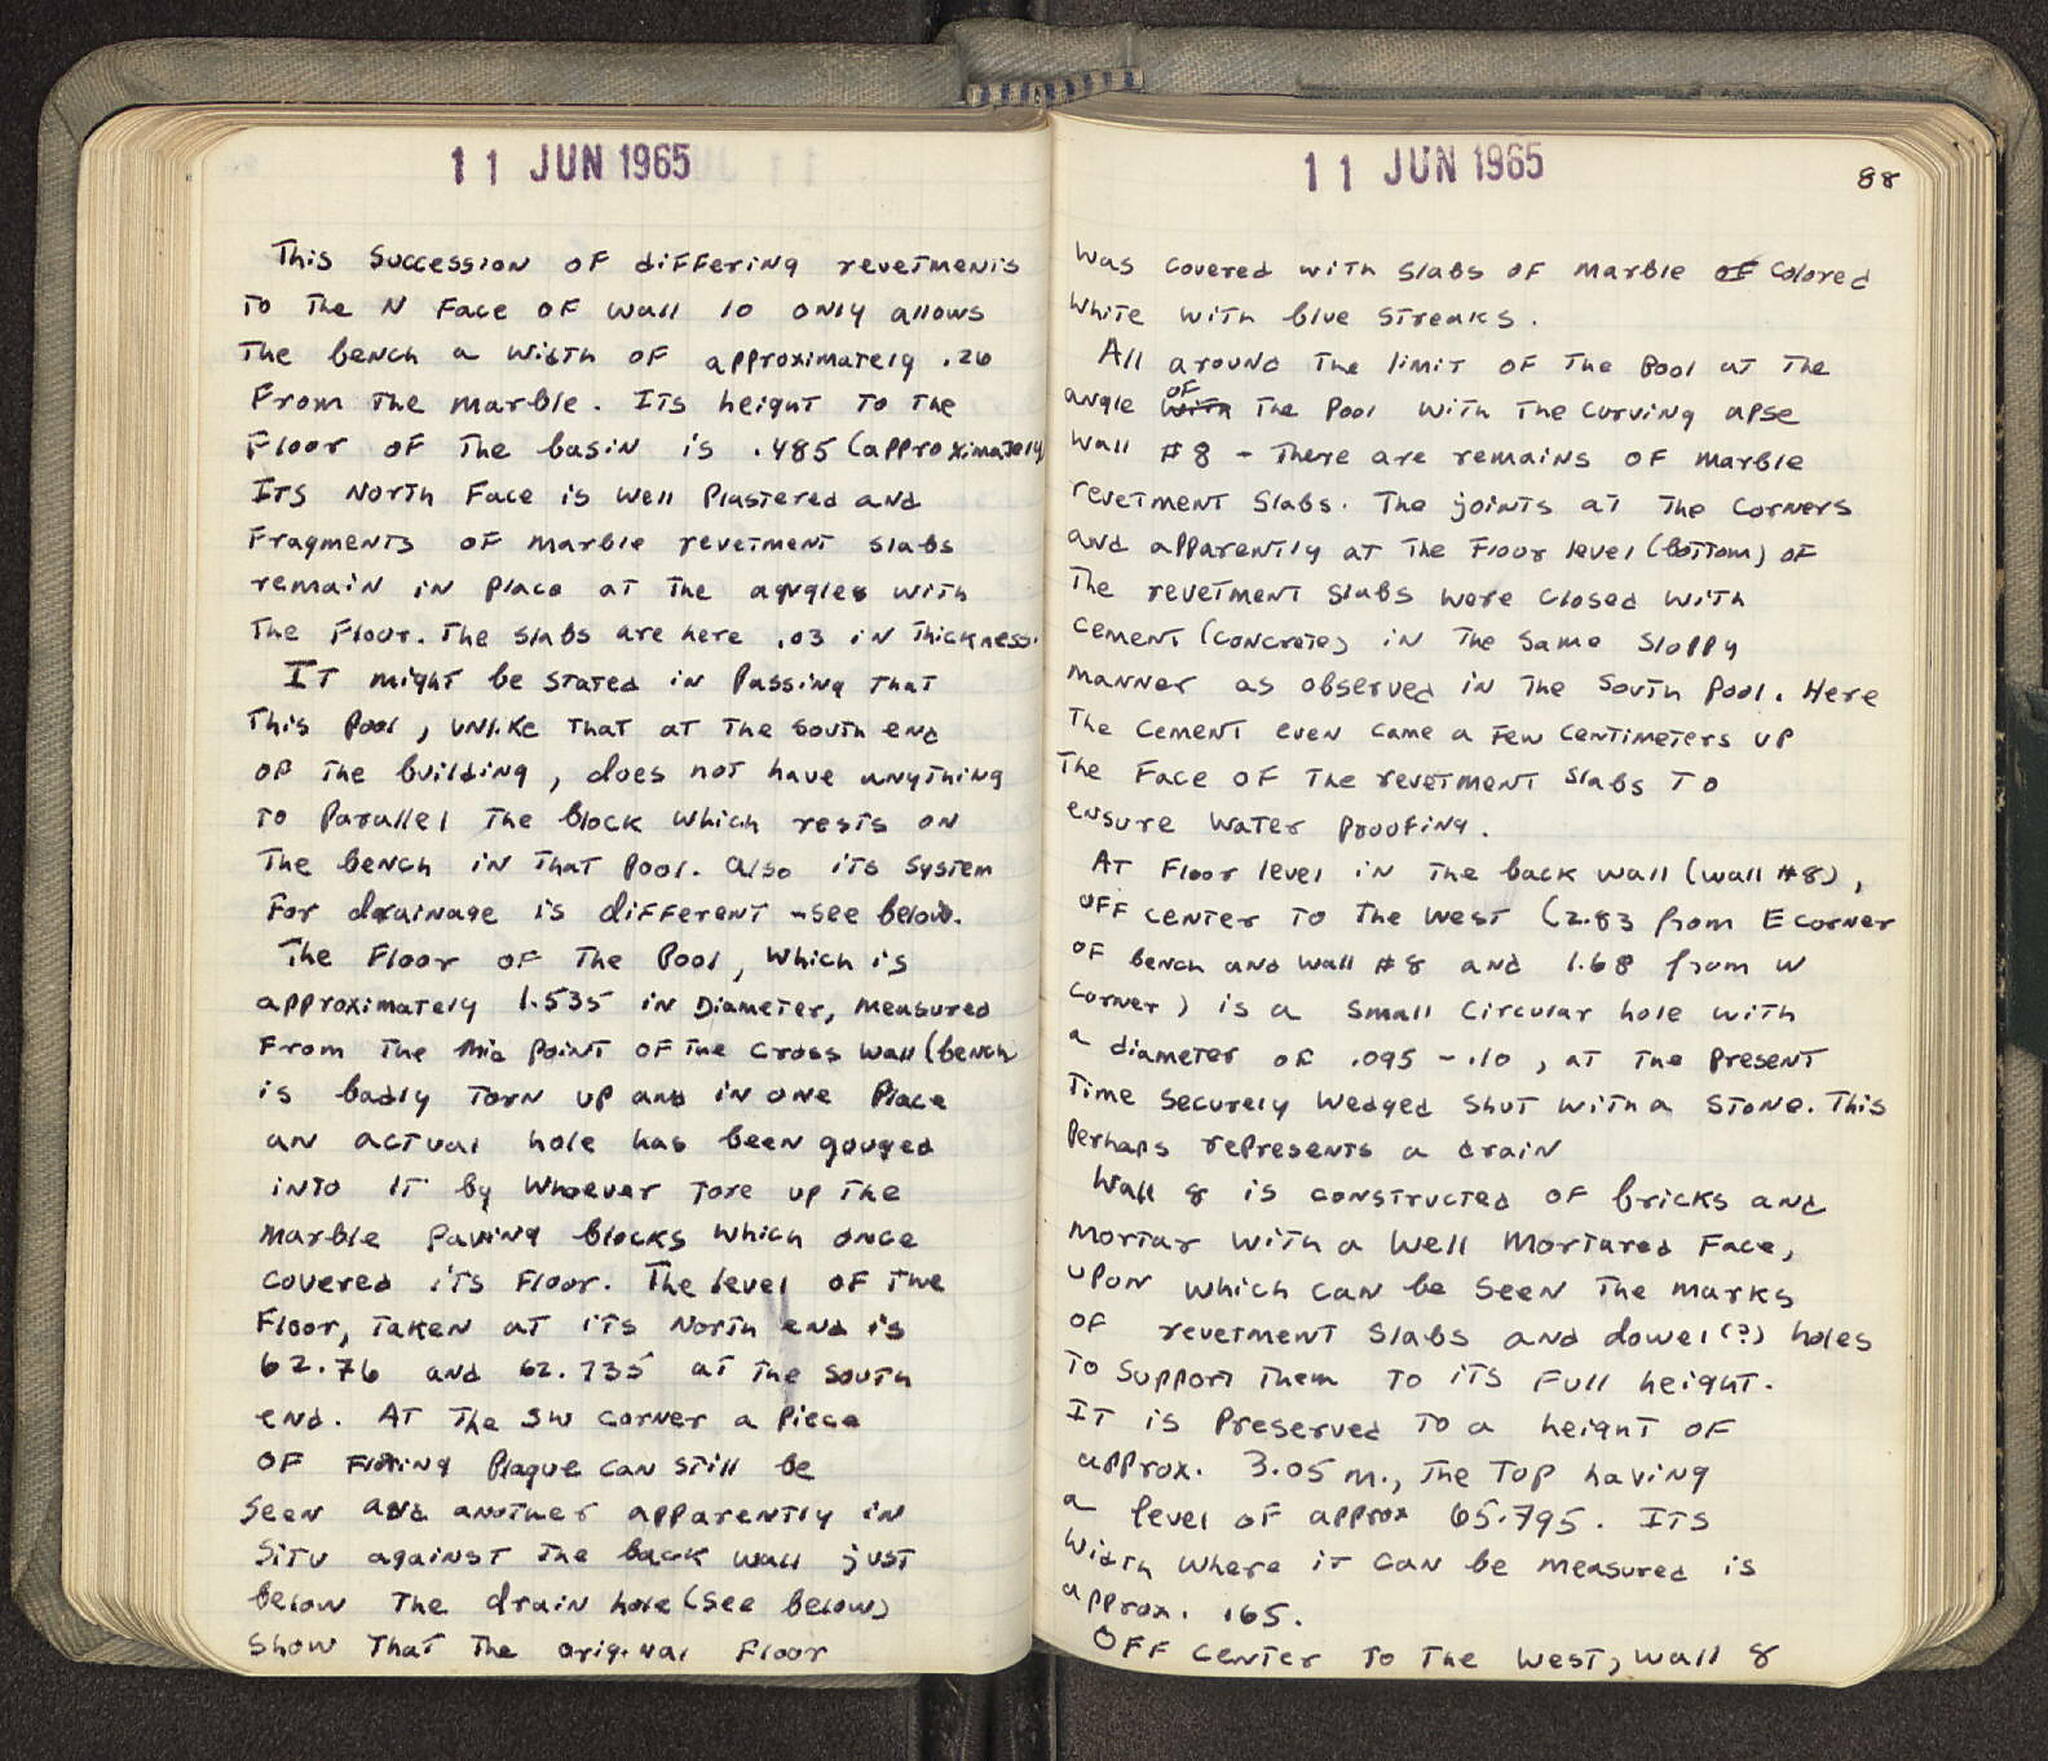 11 JUN 1965
This Succession of differing revetments
to the N Face of wall 10 only allows
the bench a width of approximately .26
From the marble. Its height to the
Floor of the basin is .485 (approximately
Its North Face is well Plastered and
Fragments of marble revetment slabs
remain in place at the angles with
the Floor. The slabs are here .03 in thickness.
It might be stated in Passing that
this Pool, unlike that at the south end
of the building, does not have anything
to Parallel the block which rests on
the bench in that Pool. Also its system
For drainage is different - see below.
The Floor of the Pool, which is
approximately 1.535 in Diameter, measured
From the Mid Point of the cross wall (bench
is badly torn up and in one Place
an actual hole has been gouged
into it by Whoever tore up the
Marble Paving blocks which once
covered its Floor. The level of the
Floor, taken at its North end is
62.76 and 62.735 at the south
end. At the SW corner a Piece
of Plaque can still be
Seen and another apparently in
Situ against the back wall just
below the drain hole (see below)
Show that the original Floor
11 JUN 1965
88
Was covered with slabs of marble of colored
White with blue streaks.
All around the limit of the Pool at the
of
angle with the Pool with the curving apse
Wall #8 - There are remains of marble
revetment slabs. The joints at the corners
and apparently at the Floor level (bottom) of
The revetment slabs were closed with
cement (concrete) in the same sloppy
manner as observed in the South Pool. Here
The cement even came a Few centimeters up
The Face of the revetment slabs to
ensure water proofing.
At Floor level in the back wall (wall #8),
OFF center to the west (2.83 from E corner
of bench and wall #8 and 1.68 from W
corner) is a small circular hole with
a diameter of .095 - .10, at the present
Time securely wedged shut with a stone. This
Perhaps represents a drain
Wall 8 is constructed of bricks and
Mortar with a well Mortared Face,
upon which can be seen the marks
of revetment slabs and dowel(?) holes
to support them to its Full height.
It is Preserved to a height of
approx. 3.05 m., the top having
a level of approx 65.795. Its
Width where it can be measured is
approx. .65.
OFF center to the west, wall 8